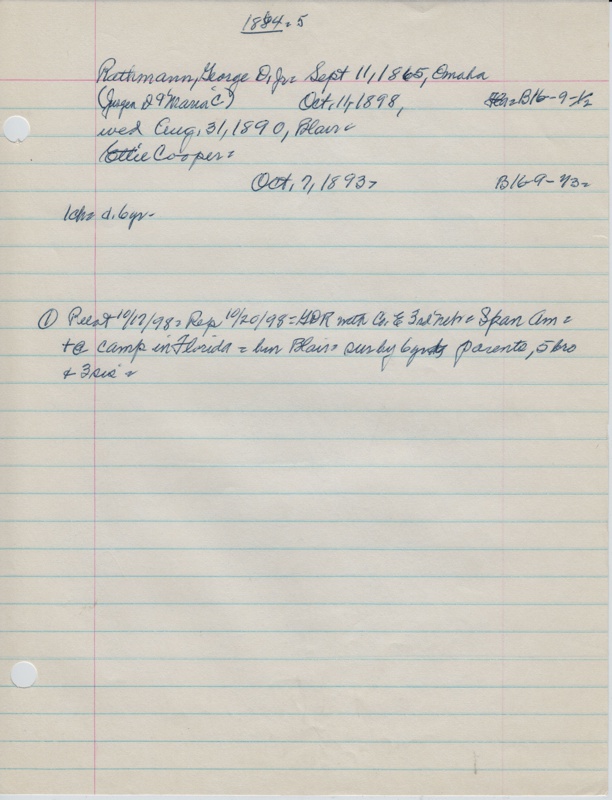 1884-5
Rathmann, George D, Jr = Sept 11, 1865, Omaha
(Jurgen D & Maria C) Oct, 14, 1898, B16-9-1/2
wed Aug, 31, 1890, Blair =
Lottie Cooper =
Oct, 7, 1893 = B16-9-1/3 =
1 ch = d. 6 yr -
① Pilot 10/19/98 = Rep 10/20/98 = GDR with Co. E 3rd Neb = Span Am =
+ @ camp in Florida = bur Blair = sur by 6 yr parents, 5 bro
+ 3 sis =